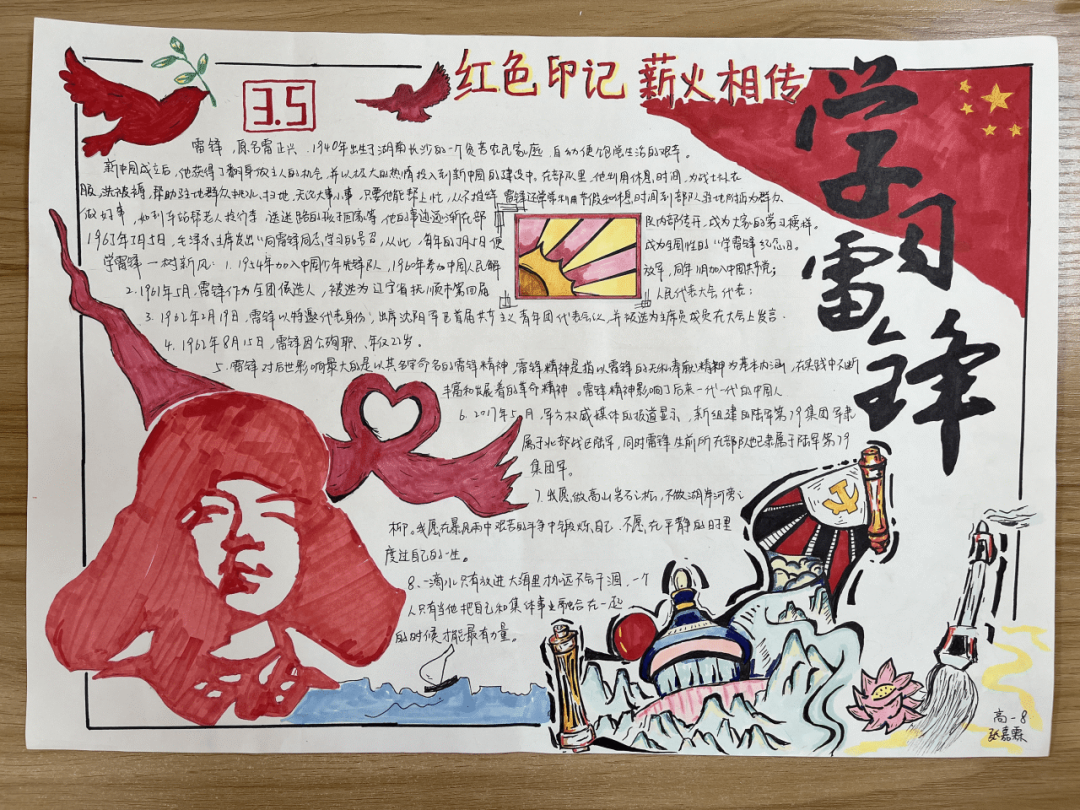 红色印记 薪火相传
3.5
学习雷锋
雷锋，原名雷正兴，1940年出生于湖南长沙的一个贫苦农民家庭，自幼便饱尝生活的艰辛。
新中国成立后，他获得了翻身做主人的机会，并以极大的热情投入到新中国的建设中。在部队里，他利用休息时间，为战士
服，洗被褥，帮助驻地群众挑水、扫地，无论大事小事，只要他能帮上忙，从不推辞。雷锋还常常利用节假和休息时间到部队驻地附近为群众
做好事，如到车站帮老人找行李，送迷路的孩子回家等，他的事迹逐渐在部 队内部传开，成为大家的学习榜样。
1963年3月5日，毛泽东主席发出"向雷锋同志学习的号召，从此，每年的3月5日便 成为全国性的"学雷锋纪念日。
学雷锋 一树新风：1. 1954年加入中国少年先锋队，1960年参加中国人民解 放军，同年11月加入中国共产党；
2. 1961年5月，雷锋作为全团候选人，被选为辽宁省抚顺市第四届 人民代表大会代表；
3. 1962年2月19日，雷锋以特邀代表身份，出席沈阳军区首届共青主义青年团代表会议，并被选为主席员成员在大会上发言.
4. 1962年8月15日，雷锋因公殉职，年仅22岁。
5. 雷锋对后世影响最大的是以其名字命名的雷锋精神，雷锋精神是指以雷锋的无私奉献精神为基本内涵，在实践中不断
丰富和发展着的革命精神。雷锋精神影响了后来一代一代的中国人
6. 2017年5月，军方权威媒体的报道显示，新组建的陆军第79集团军隶
属于北部战区陆军，同时雷锋生前所在部队也隶属于陆军第79
集团军。
7. 我愿做高山岩石之松，不做湖岸河旁之
柳。我愿在暴风雨中艰苦的斗争中锻炼自己，不愿在平静的日子里
度过自己的一生。
8. 一滴水只有放进大海里才永远不会干涸，一个
人只有当他把自己和集体事业融合在一起
的时候才能最有力量。
高一8